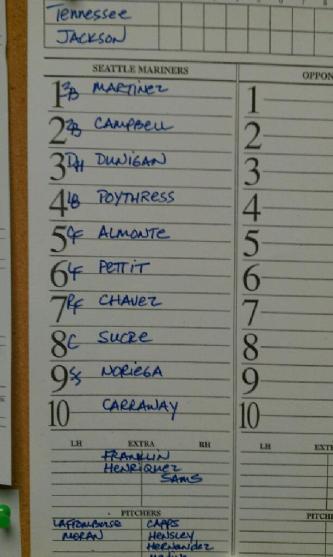 Tennessee
JACKSON
SEATTLE MARINERS
OPPON
1 3B MARTINEZ 1
2 2B CAMPBELL 2
3 DH DUNIGAN 3
4 1B POYTHRESS 4
5 CF ALMONTE 5
6 LF PETTIT 6
7 RF CHAVEZ 7
8 C SUCRE 8
9 SS NORIEGA 9
10 CARRAWAY 10
LH EXTRA RH LH EXTR
FRANKLIN
HENRIQUEZ
SAMS
PITCHERS PITCH
LAFROMBOISE CAPPS
MORAN HENSLEY
HERNANDEZ